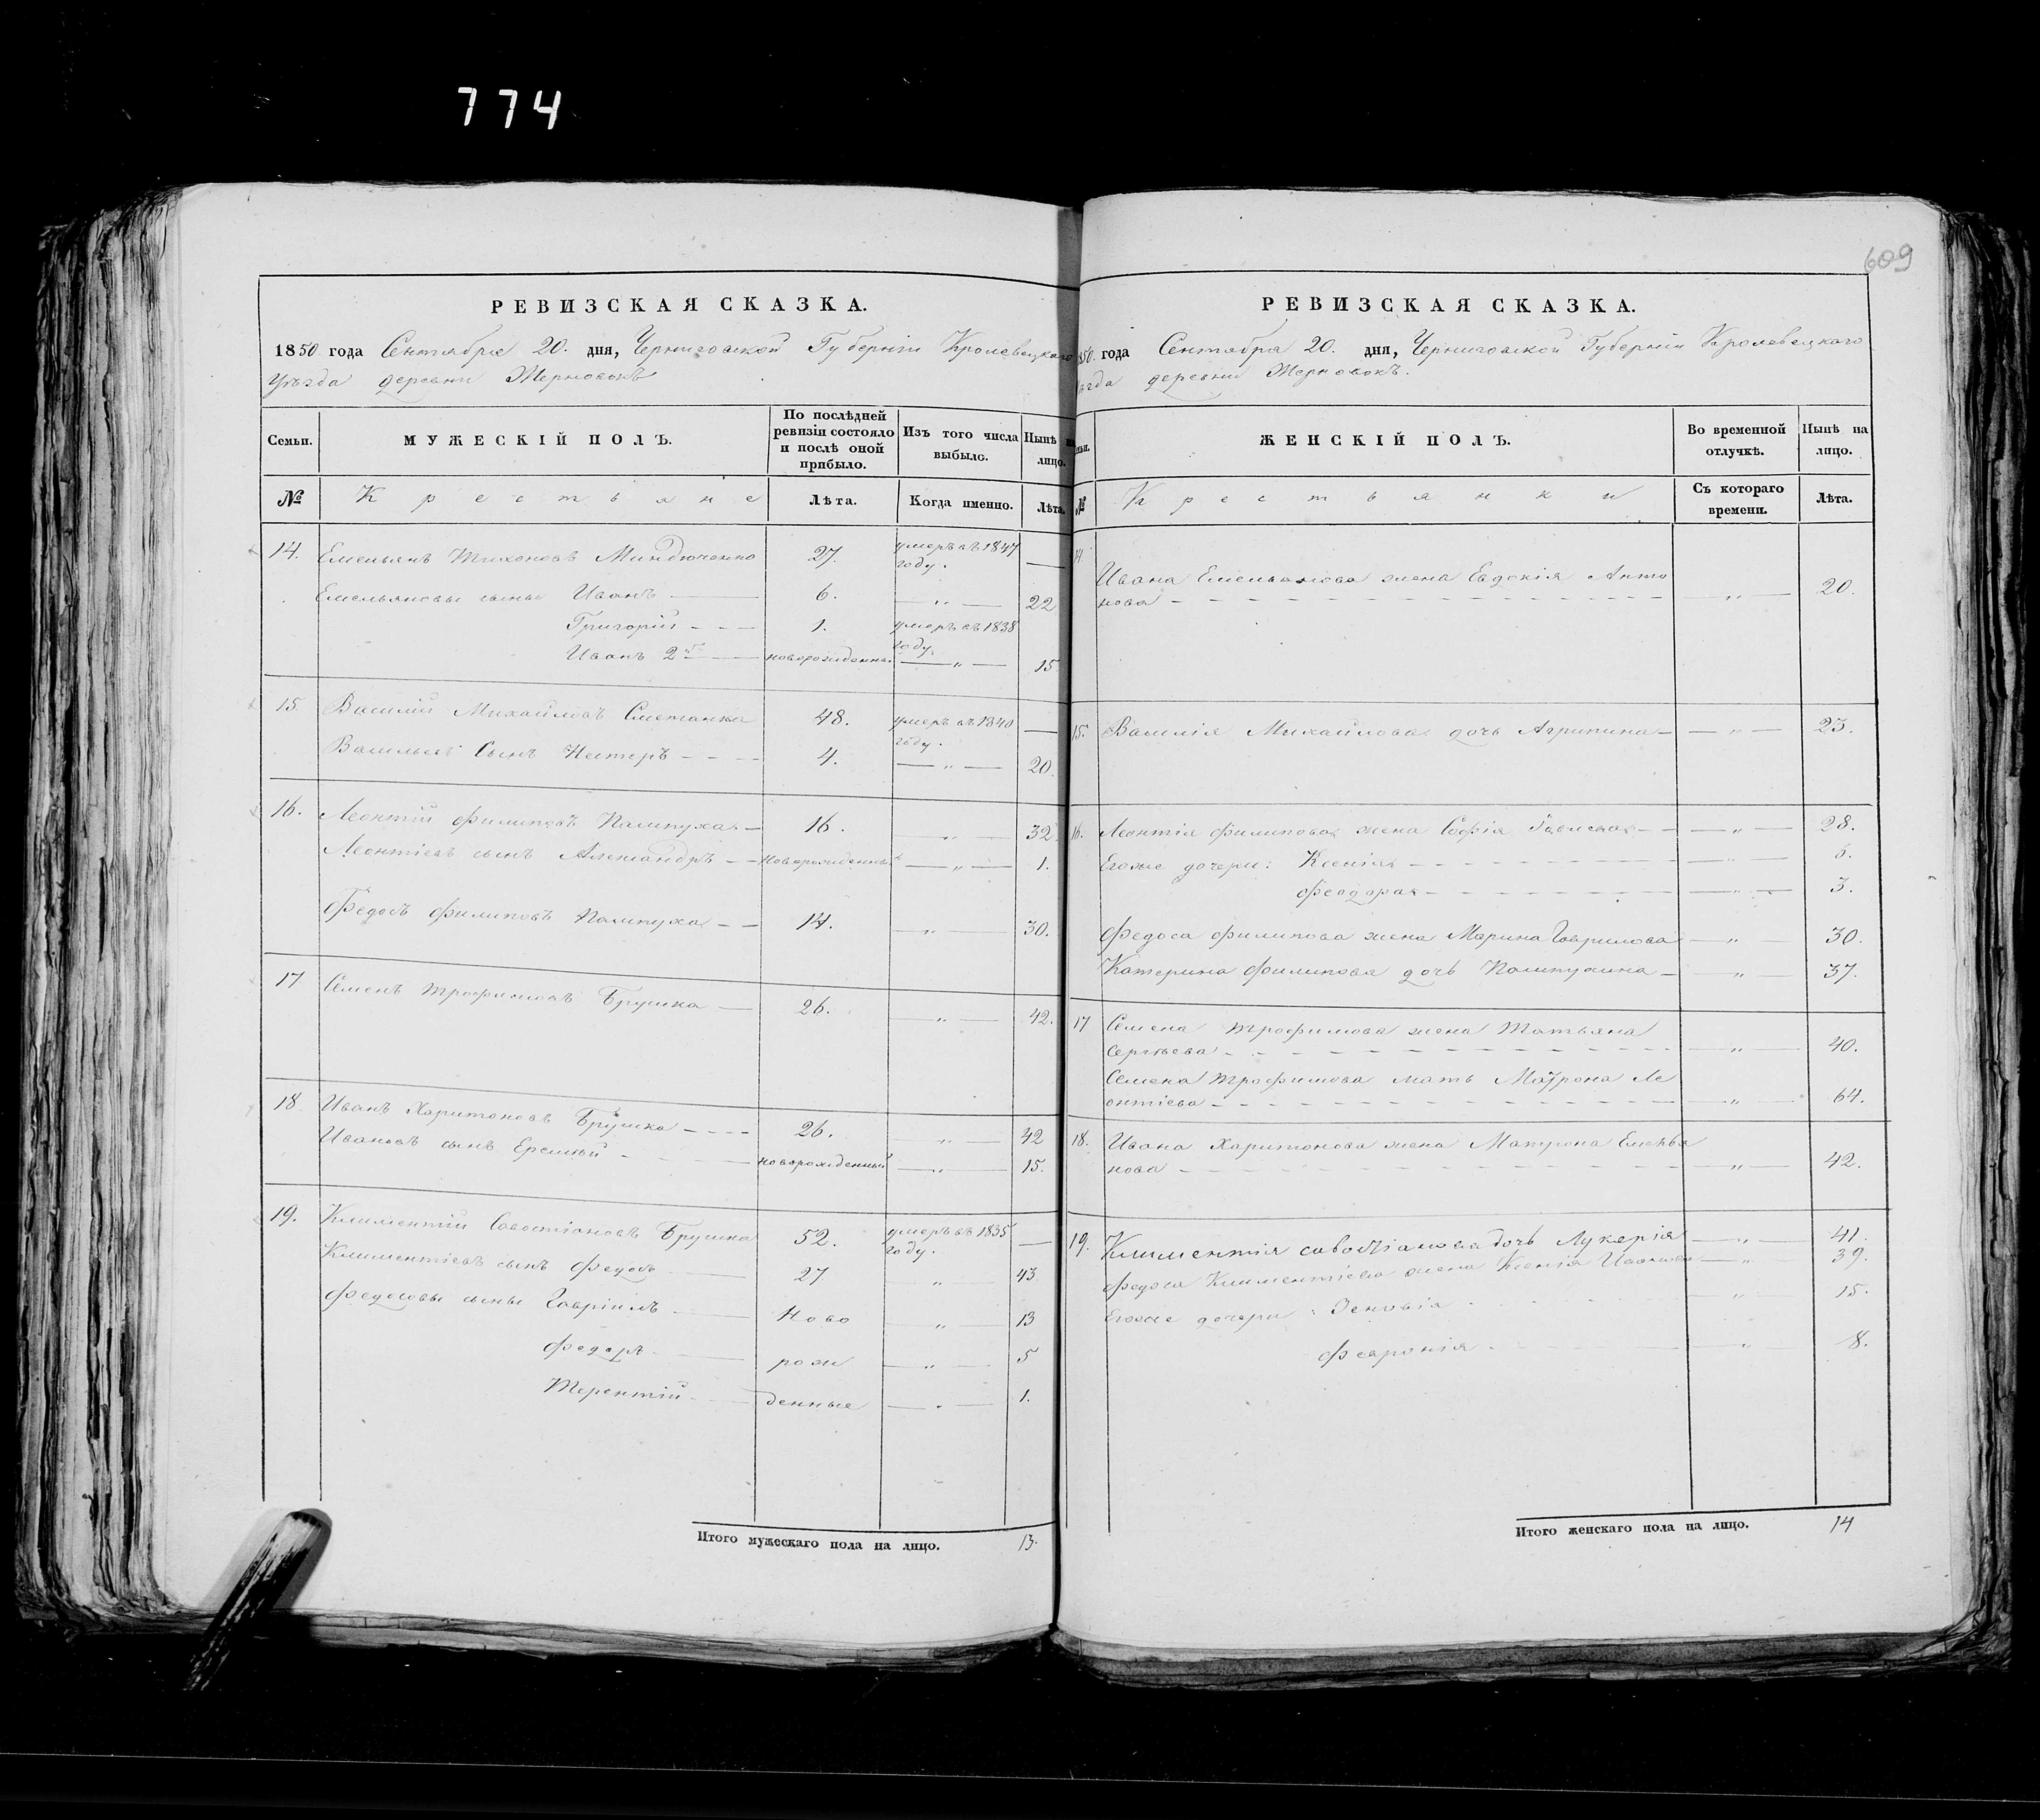 774
609
РЕВИЗСКАЯ СКАЗКА.
1850 года Сентября 20. дня, Черниговской Губерніи Кролевецкаго
Уѣзда деревни Жерновокъ
Семьи. МУЖЕСКІЙ ПОЛЪ. По послѣдней ревизіи состояло и послѣ оной прибыло. Изъ того числа выбыло. Нынѣ на лицо.
№ Крестьяне Лѣта. Когда именно. Лѣта.
14. Емельянъ Тихоновъ Миндюченко 27. умеръ въ 1847 году. —
Емельяновы сыны Иванъ — 6. — „ — 22
Григорій - - — 1. умеръ въ 1838 году.
Иванъ 2й — новорожденны. — „ — 15
15 Василій Михайловъ Сметанка 48. умеръ въ 1840 году. —
Васильевъ Сынъ Нестеръ - - - - 4. — „ — 20.
16. Леонтій Филиповъ Палипуха — 16. — „ — 32.
Леонтіевъ сынъ Александръ - — новорожденный — „ — 1.
Федосъ Филиповъ Палипуха - - 14. — „ — 30.
17 Семенъ Трофимовъ Брушка — 26. — „ — 42.
18. Иванъ Харитоновъ Брушка - - - - 26. — „ — 42
Ивановъ сынъ Еремѣй - — новорожденный — „ — 15.
19. Климентій Савостіановъ Брушка 52. умеръ въ 1835 году. —
Климентіевъ сынъ Федосъ — 27 — „ — 43
Федосовы сыны Гавріилъ — Ново — „ — 13
Федоръ — рож — „ — 5
Терентій — денные — „ — 1.
Итого мужескаго пола на лицо. 13.
РЕВИЗСКАЯ СКАЗКА.
850. года Сентября 20. дня, Черниговской Губерніи Кролевецкаго
ѣзда деревни Жерновокъ.
ьи. ЖЕНСКІЙ ПОЛЪ. Во временной отлучкѣ. Нынѣ на лицо.
№ Крестьянки Съ котораго времени. Лѣта.
14. Ивана Емельянова жена Евдокія Анто
нова - - - - - — „ — 20.
15. Василія Михайлова дочь Агрипина — — „ — 23.
16. Леонтія Филипова жена Софія - - — „ — 28.
Егоже дочери: Ксенія - - - - — „ —
Феодора - - - - — „ — 3.
Федоса Филипова жена Марина Гаврилова — „ — 30.
Катерина Филипова дочь Палипухина — — „ — 37.
17 Семена Трофимова жена Татьяна
Сергѣева - - - - - — „ — 40.
Семена Трофимова мать Матрона Ле
онтіева - - - - - — „ — 64.
18. Ивана Харитонова жена Матрона Емелья
нова - - - - - — „ — 42.
19. Климентія савостіанова дочь Лукерія — „ — 41.
Федоса Климентіева жена Ксенія Иванова — „ — 39.
Егоже дочери: Зеновія - - - „ 15.
Февронія - - - „ 8.
Итого женскаго пола на лицо. 14